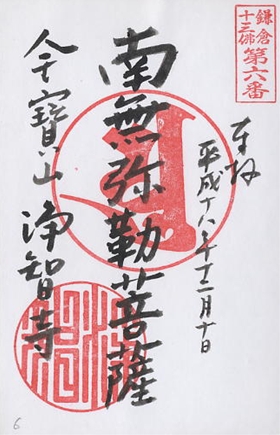 鎌倉
十三佛
第六番
奉拝
平成十八年十二月十日
南無弥勒菩薩
金寶山 浄智寺
6